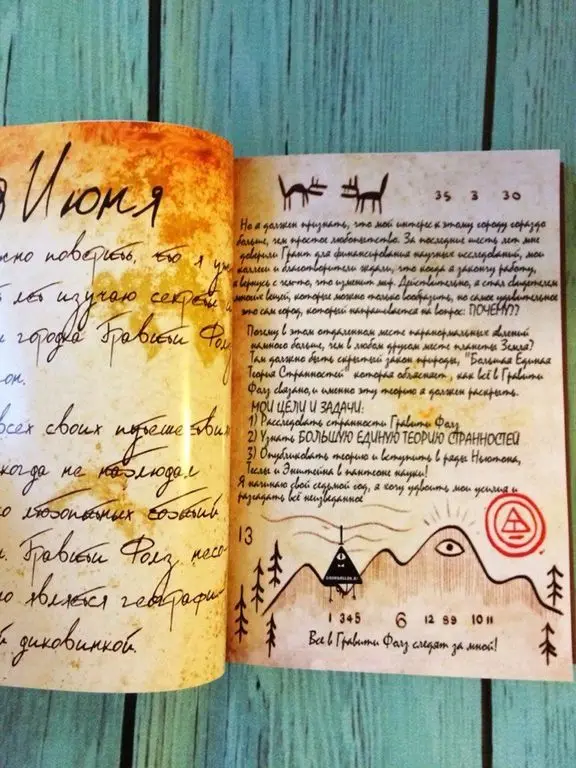 Июня
но поверить, что я уже
лет изучаю секреты
городка Гравити Фолз
он.
всех своих путешествиях
когда не наблюдал
о любопытных событий
. Гравити Фолз, несо-
но является географи-
й диковинкой.
35 3 30
Но я должен признать, что мой интерес к этому городу гораздо
больше, чем простое любопытство. За последние шесть лет мне
доверили Грант для финансирования научных исследований, мои
коллеги и благотворители ждали, что когда я закончу работу,
я вернусь с чем-то, что изменит мир. Действительно, я стал свидетелем
многих вещей, которые можно только вообразить, но самое удивительное
это сам город, который напрашивается на вопрос: ПОЧЕМУ??
Почему в этом отдаленном месте паранормальных явлений
намного больше, чем в любом другом месте планеты Земля?
Там должно быть скрытый закон природы, "Большая Единая
Теория Странностей" которая объясняет, как всё в Гравити
Фолз связано, и именно эту теорию я должен раскрыть.
МОИ ЦЕЛИ И ЗАДАЧИ:
1) Расследовать странность Гравити Фолз
2) Узнать БОЛЬШУЮ ЕДИНУЮ ТЕОРИЮ СТРАННОСТЕЙ
3) Опубликовать теорию и вступить в ряды Ньютона,
Теслы и Энштейна в пантеоне науки!
Я начинаю свой седьмой год, я хочу удвоить мои усилия и
разгадать всё неизведанное
13
1 345 6 12 89 10 11
Все в Гравити Фолз следят за мной!